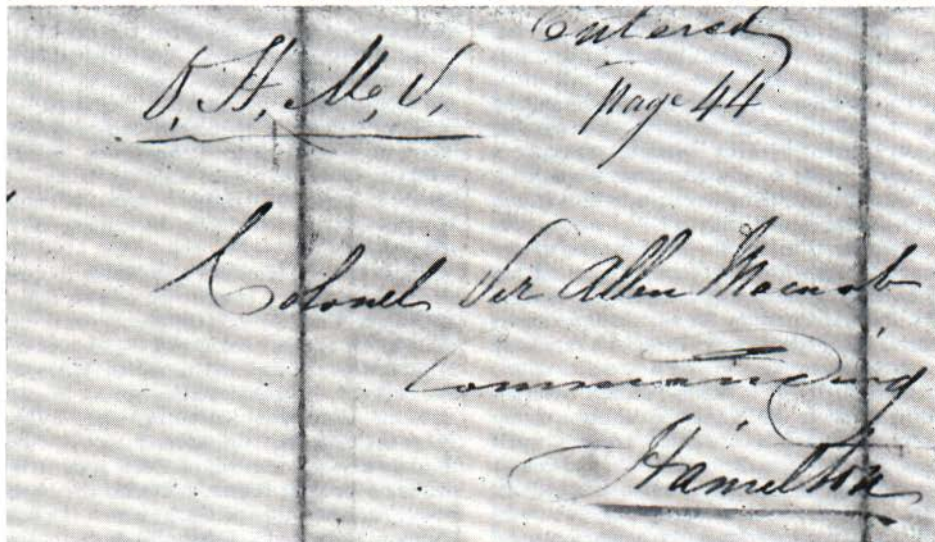 Entered
O. H. M. S. page 44
Colonel Sir Allen Macnab
Commanding
Hamilton